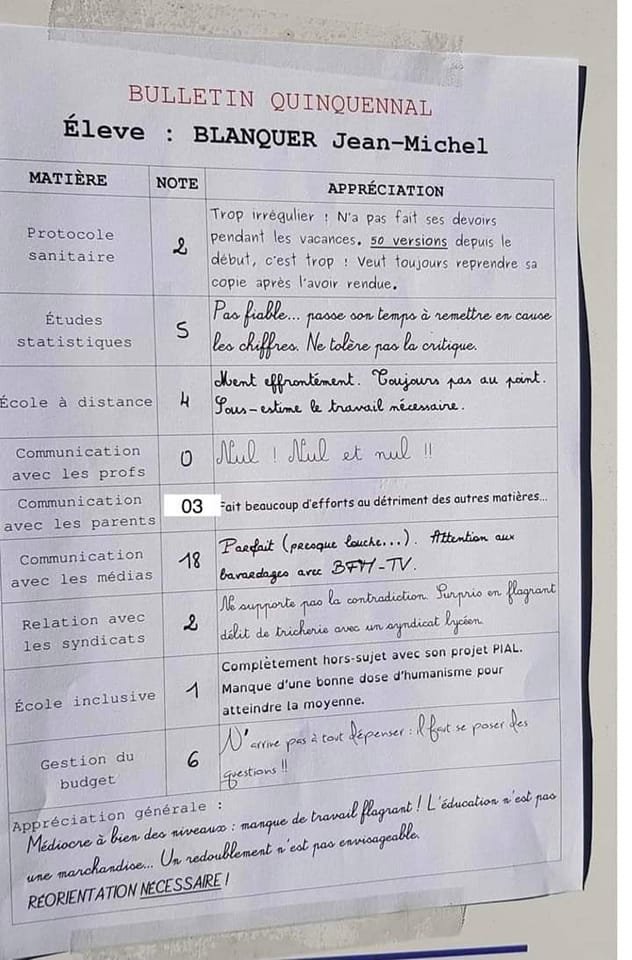 BULLETIN QUINQUENNAL
Éleve : BLANQUER Jean-Michel
MATIÈRE NOTE APPRÉCIATION
Protocole sanitaire
2
Trop irrégulier ! N'a pas fait ses devoirs
pendant les vacances. 50 versions depuis le
début, c'est trop ! Veut toujours reprendre sa
copie après l'avoir rendue.
Études statistiques
5
Pas fiable... passe son temps à remettre en cause
les chiffres. Ne tolère pas la critique.
École à distance
4
Ment effrontément. Toujours pas au point.
Sous-estime le travail nécessaire.
Communication
avec les profs
0
Nul ! Nul et nul !!
Communication
avec les parents
03
Fait beaucoup d'efforts au détriment des autres matières...
Communication
avec les médias
18
Parfait (presque louche...). Attention aux
bavardages avec BFM-TV.
Relation avec
les syndicats
2
Ne supporte pas la contradiction. Surpris en flagrant
délit de tricherie avec un syndicat lycéen.
École inclusive
1
Complètement hors-sujet avec son projet PIAL.
Manque d'une bonne dose d'humanisme pour
atteindre la moyenne.
Gestion du
budget
6
N'arrive pas à tout dépenser : il faut se poser des
questions !!
Appréciation générale :
Médiocre à bien des niveaux : manque de travail flagrant ! L'éducation n'est pas
une marchandise... Un redoublement n'est pas envisageable.
RÉORIENTATION NÉCESSAIRE !